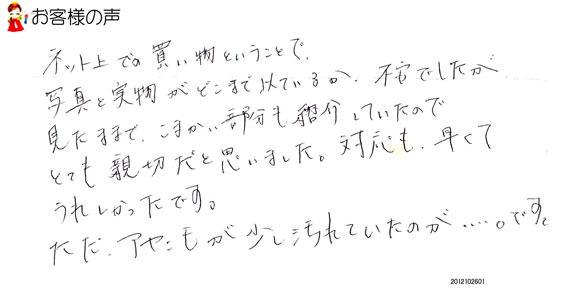 お客様の声
ネット上での買い物ということで、
写真と実物がどこまで似ているか、不安でしたが
見たままで、こまかい部分も紹介していたので
とても親切だと思いました。対応も、早くて
うれしかったです。
ただ、アヤニモが少し汚れていたのが‥‥。です。
2012102601